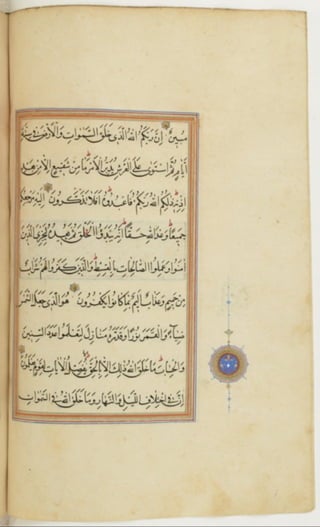 مبين ان ربكم الله الذي خلق السموات والارض في ستة
ايام ثم استوى على العرش يدبر الامر ما من شفيع الا من بعد
اذنه ذلكم الله ربكم فاعبدوه افلا تذكرون اليه مرجعكم
جميعا وعد الله حقا انه يبدؤا الخلق ثم يعيده ليجزي الذين
امنوا وعملوا الصالحات بالقسط والذين كفروا لهم شراب
من حميم وعذاب اليم بما كانوا يكفرون هو الذي جعل الشمس
ضياء والقمر نورا وقدره منازل لتعلموا عدد السنين
والحساب ما خلق الله ذلك الا بالحق يفصل الايات لقوم يعلمون
ان في اختلاف الليل والنهار وما خلق الله في السموات